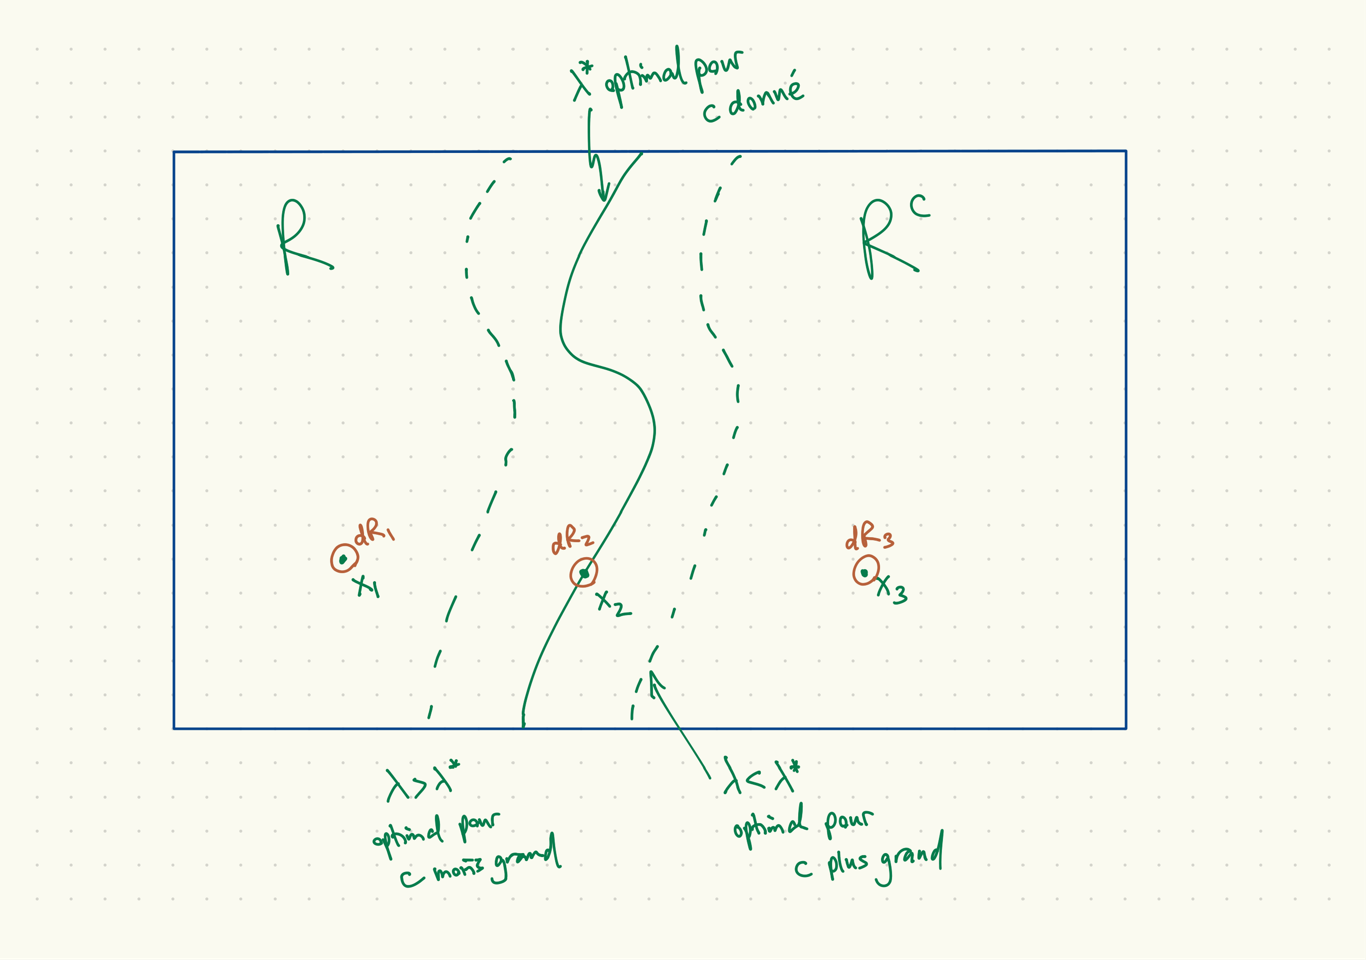 λ* optimal pour
c donné
R
R^C
dR₁
x₁
dR₂
x₂
dR₃
x₃
λ > λ*
optimal pour
c moins grand
λ < λ*
optimal pour
c plus grand